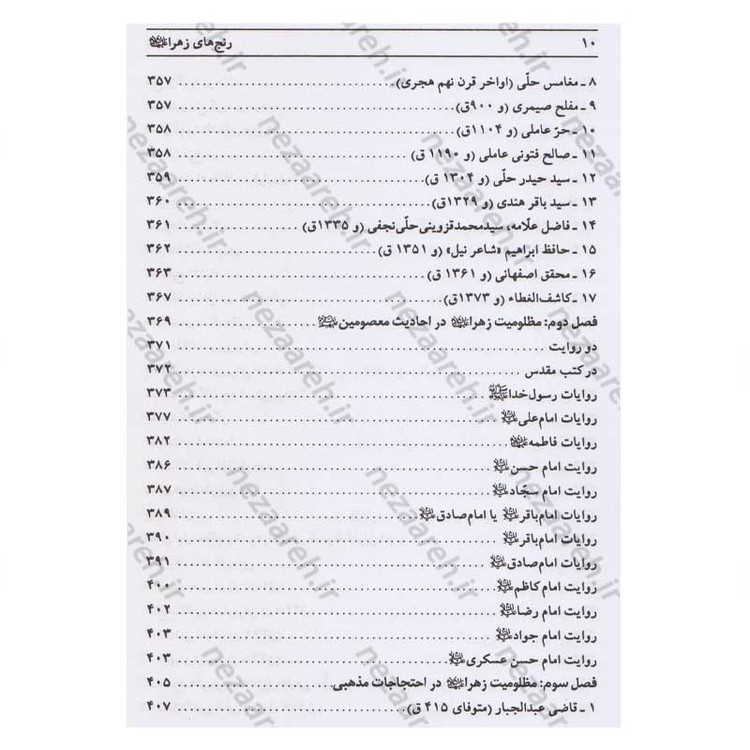 ۱۰ رنج‌های زهرا
۸ ـ مغامس حلّی (اواخر قرن نهم هجری) ۳۵۷
۹ ـ مفلح صیمری (و ۹۰۰ق) ۳۵۷
۱۰ ـ حرّ عاملی (و ۱۱۰۴ق) ۳۵۸
۱۱ ـ صالح فتونی عاملی (و ۱۱۹۰ ق) ۳۵۸
۱۲ ـ سید حیدر حلّی (و ۱۳۰۴ ق) ۳۵۹
۱۳ ـ سید باقر هندی (و ۱۳۲۹ق) ۳۶۰
۱۴ ـ فاضل علّامه، سیدمحمدقزوینی‌حلّی‌نجفی (و ۱۳۳۵ق) ۳۶۱
۱۵ ـ حافظ ابراهیم «شاعر نیل» (و ۱۳۵۱ ق) ۳۶۲
۱۶ ـ محقق اصفهانی (و ۱۳۶۱ ق) ۳۶۳
۱۷ ـ کاشف‌الغطاء (و ۱۳۷۳ق) ۳۶۷
فصل دوم: مظلومیت زهرا در احادیث معصومین ۳۶۹
دو روایت ۳۷۱
در کتب مقدس ۳۷۲
روایات رسول‌خدا ۳۷۳
روایات امام‌علی ۳۷۷
روایات فاطمه ۳۸۲
روایت امام حسن ۳۸۶
روایت امام سجّاد ۳۸۷
روایات امام‌باقر یا امام‌صادق ۳۸۹
روایات امام‌باقر ۳۹۰
روایات امام‌صادق ۳۹۱
روایت امام کاظم ۴۰۰
روایت امام رضا ۴۰۲
روایت امام جواد ۴۰۳
روایت امام حسن عسکری ۴۰۳
فصل سوم: مظلومیت زهرا در احتجاجات مذهبی ۴۰۵
۱ ـ قاضی عبدالجبار (متوفای ۴۱۵ ق) ۴۰۷
nezaareh.ir